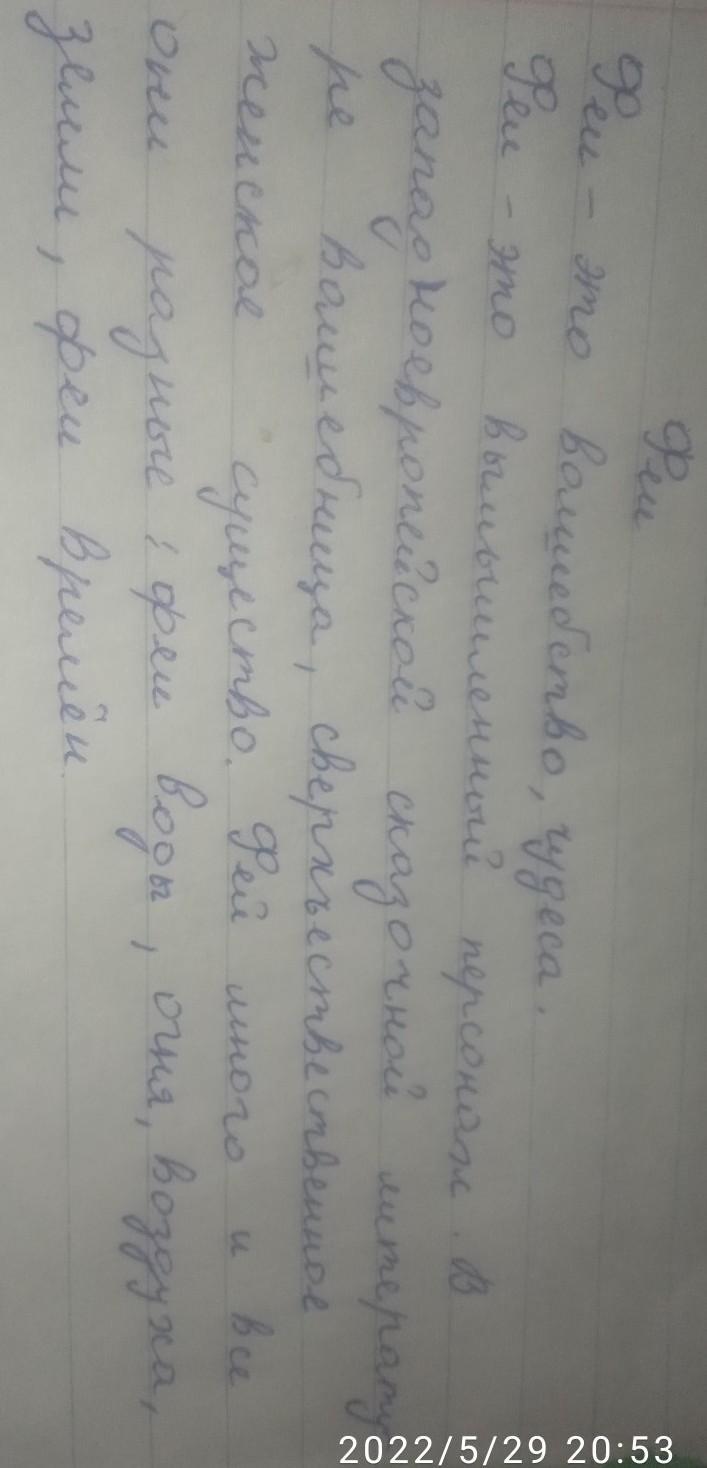 Феи
Феи - это волшебство, чудеса.
Феи - это вымышленный персонаж. В
западноевропейской сказочной литерату
ре волшебница, сверхъествественное
женское существо. Фей много и все
они разные: феи воды, огня, воздуха,
земли, феи времён.
2022/5/29 20:53